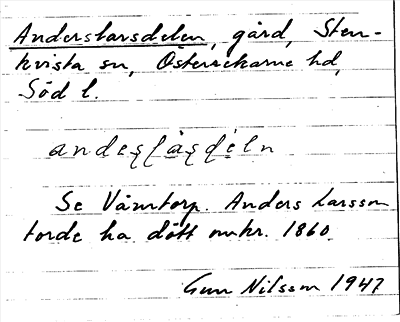 Anderslarsdelen, gård, Sten-
kvista sn, Österrekarne hd,
Söd l.
andeşļàşḍéln
Se Våmtorp. Anders Larsson
torde ha dött omkr. 1860.
Gun Nilsson 1947